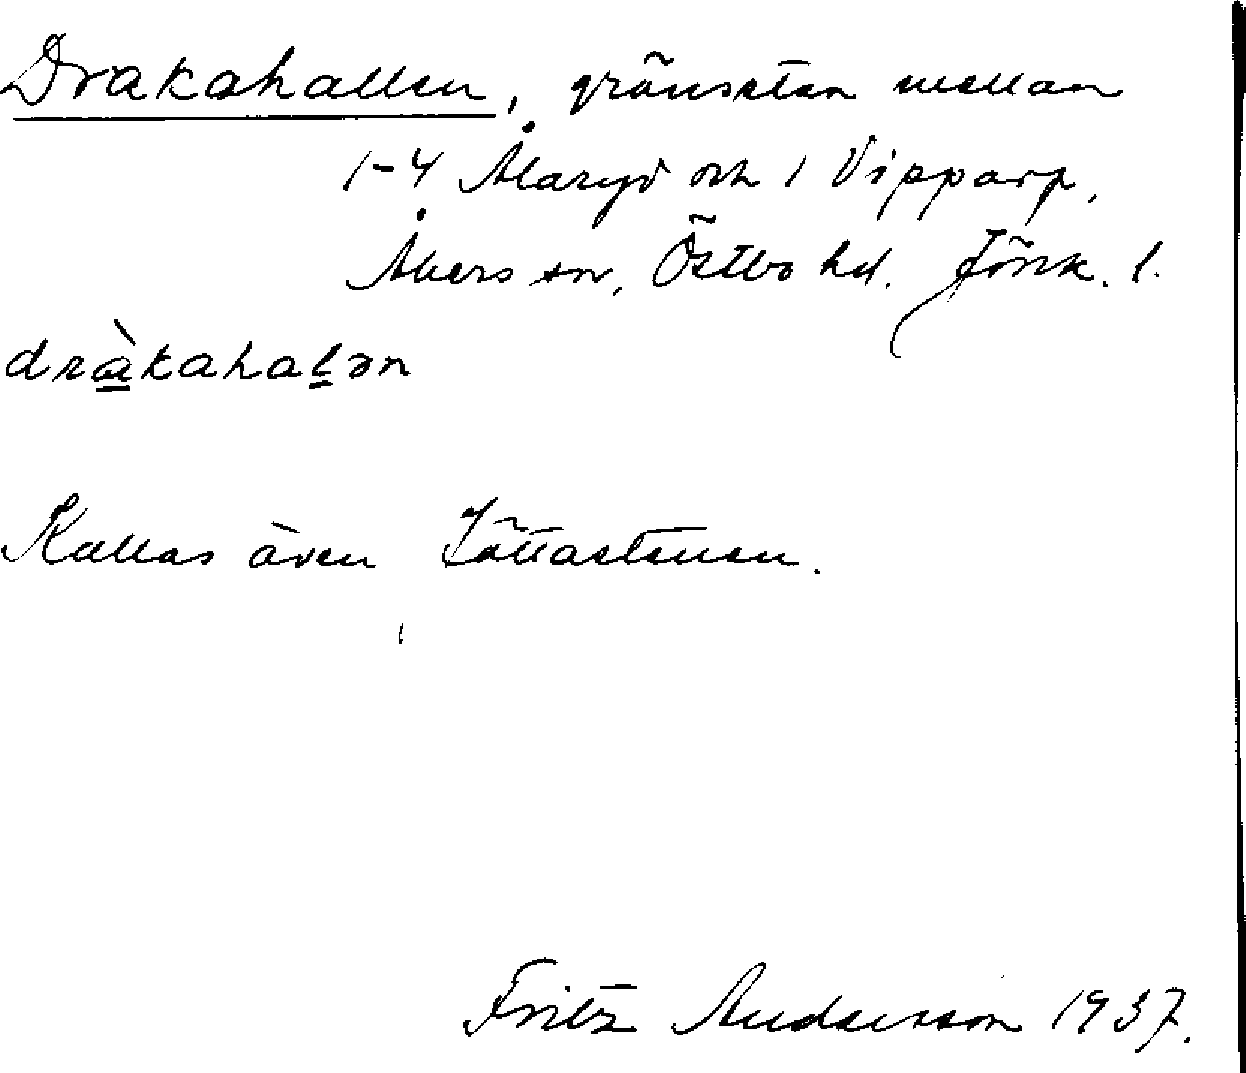 Drakahallen, gränssten mellan
1-4 Ålaryd och 1 Vipparp,
Åkers sn, Östbo hd. Jönk. l.
dràkahalən
Kallas även Jättastenen.
Fritz Andersson 1937.